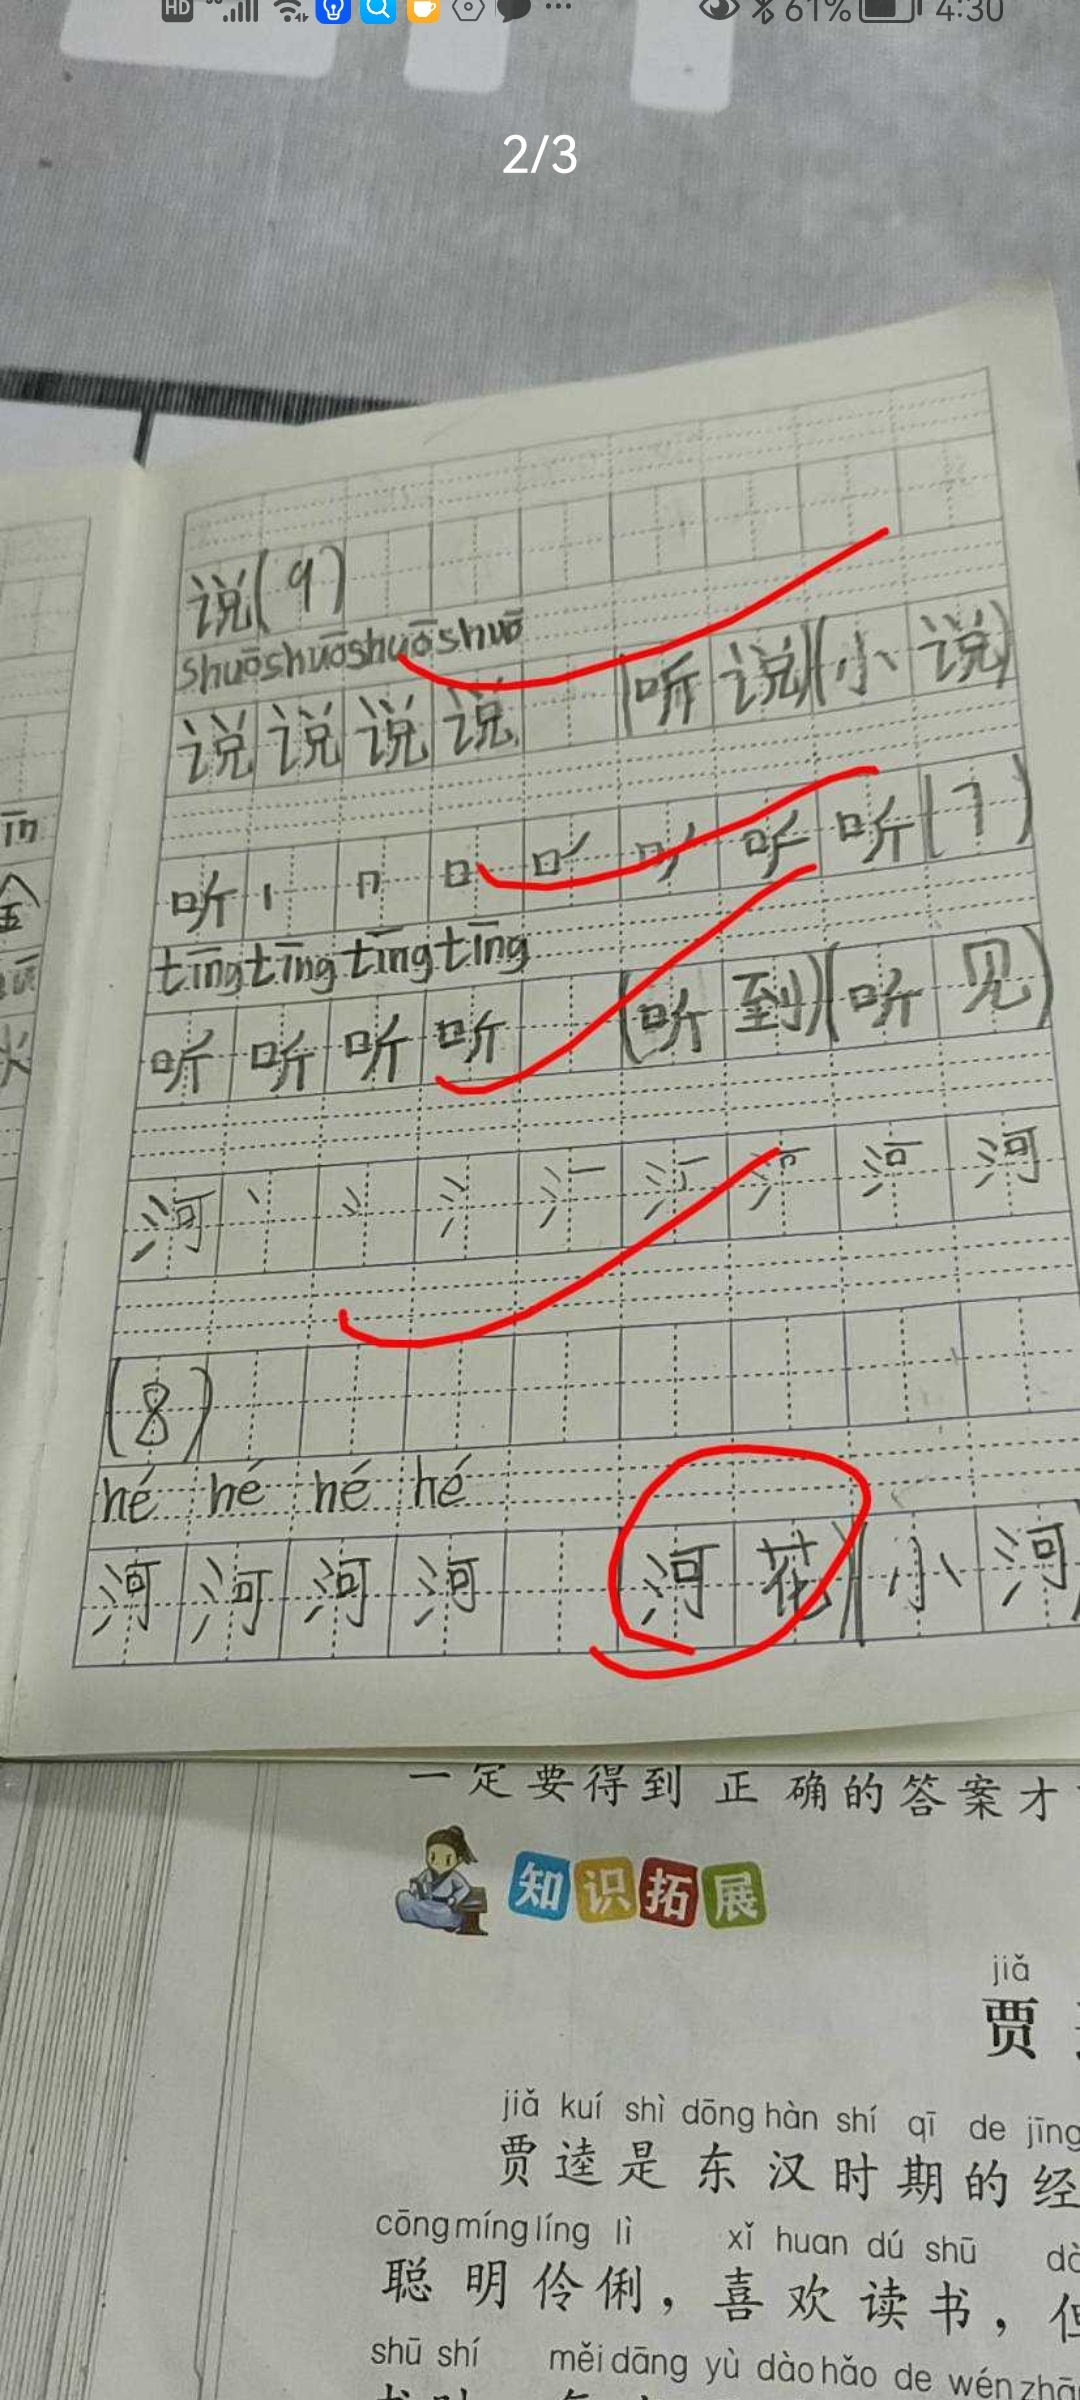 HD 61% 4:30
2/3
说(9)
shuōshuōshuōshuō
说说说说 (听说)(小说)
听丨冂口口丿 听(7)
tīngtīngtīngtīng
听听听听 (听到)(听见)
河丶冫氵 河
(8)
hé hé hé hé
河河河河 (河花)(小河)
一定要得到正确的答案才
知识拓展
jiǎ
贾
jiǎ kuí shì dōng hàn shí qī de jīng
贾逵是东汉时期的经
cōng míng líng lì xǐ huan dú shū
聪明伶俐，喜欢读书，但
shū shí měi dāng yù dào hǎo de wén zhā